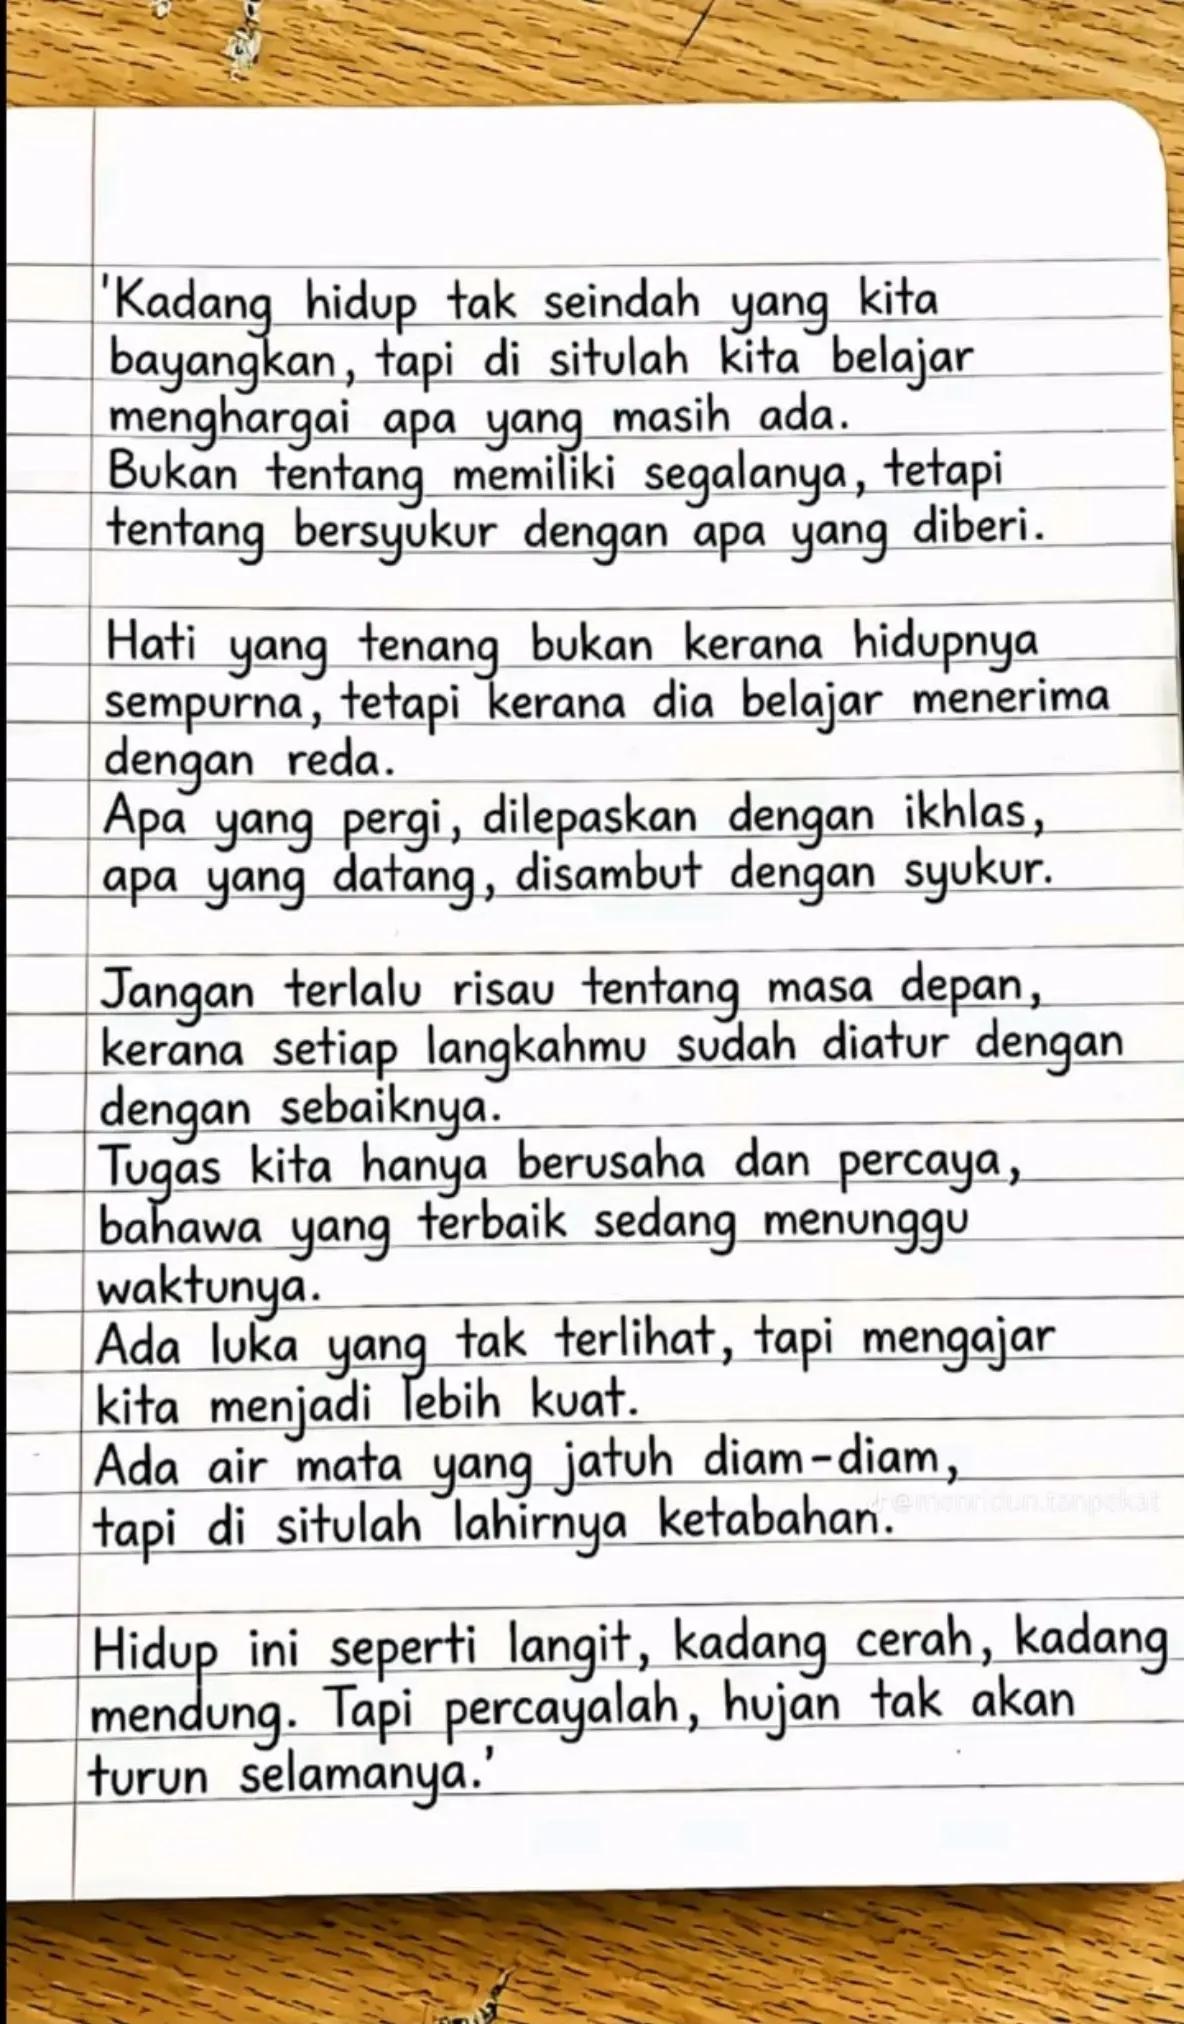 'Kadang hidup tak seindah yang kita
bayangkan, tapi di situlah kita belajar
menghargai apa yang masih ada.
Bukan tentang memiliki segalanya, tetapi
tentang bersyukur dengan apa yang diberi.
Hati yang tenang bukan kerana hidupnya
sempurna, tetapi kerana dia belajar menerima
dengan reda.
Apa yang pergi, dilepaskan dengan ikhlas,
apa yang datang, disambut dengan syukur.
Jangan terlalu risau tentang masa depan,
kerana setiap langkahmu sudah diatur dengan
dengan sebaiknya.
Tugas kita hanya berusaha dan percaya,
bahawa yang terbaik sedang menunggu
waktunya.
Ada luka yang tak terlihat, tapi mengajar
kita menjadi lebih kuat.
Ada air mata yang jatuh diam-diam,
tapi di situlah lahirnya ketabahan.
Hidup ini seperti langit, kadang cerah, kadang
mendung. Tapi percayalah, hujan tak akan
turun selamanya.'